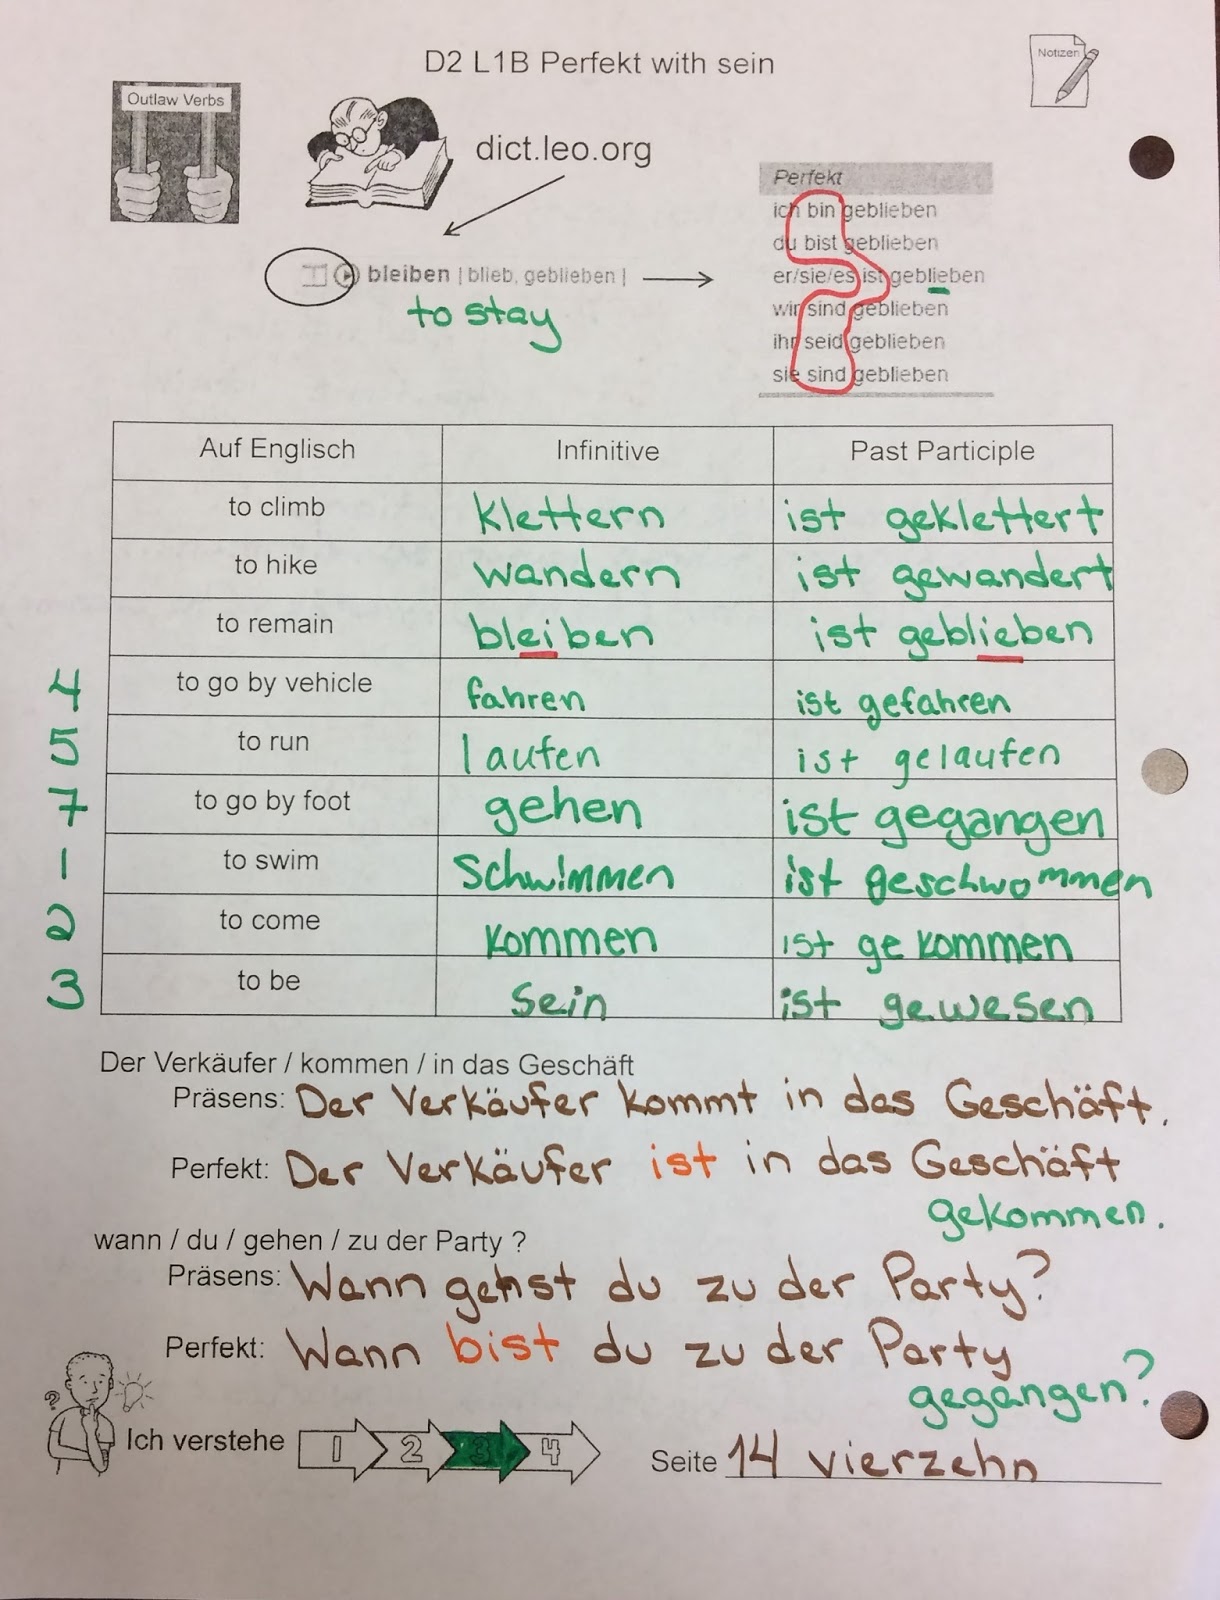 D2 L1B Perfekt with sein
Notizen
Outlaw Verbs
dict.leo.org
Perfekt
ich bin geblieben
du bist geblieben
er/sie/es ist geblieben
wir sind geblieben
ihr seid geblieben
sie sind geblieben
bleiben | blieb, geblieben |
to stay
Auf Englisch Infinitive Past Participle
to climb klettern ist geklettert
to hike wandern ist gewandert
to remain bleiben ist geblieben
4 to go by vehicle fahren ist gefahren
5 to run laufen ist gelaufen
7 to go by foot gehen ist gegangen
1 to swim schwimmen ist geschwommen
2 to come kommen ist gekommen
3 to be sein ist gewesen
Der Verkäufer / kommen / in das Geschäft
Präsens: Der Verkäufer kommt in das Geschäft.
Perfekt: Der Verkäufer ist in das Geschäft
gekommen.
wann / du / gehen / zu der Party ?
Präsens: Wann gehst du zu der Party?
Perfekt: Wann bist du zu der Party
gegangen?
?
Ich verstehe 1 2 3 4
Seite 14 vierzehn